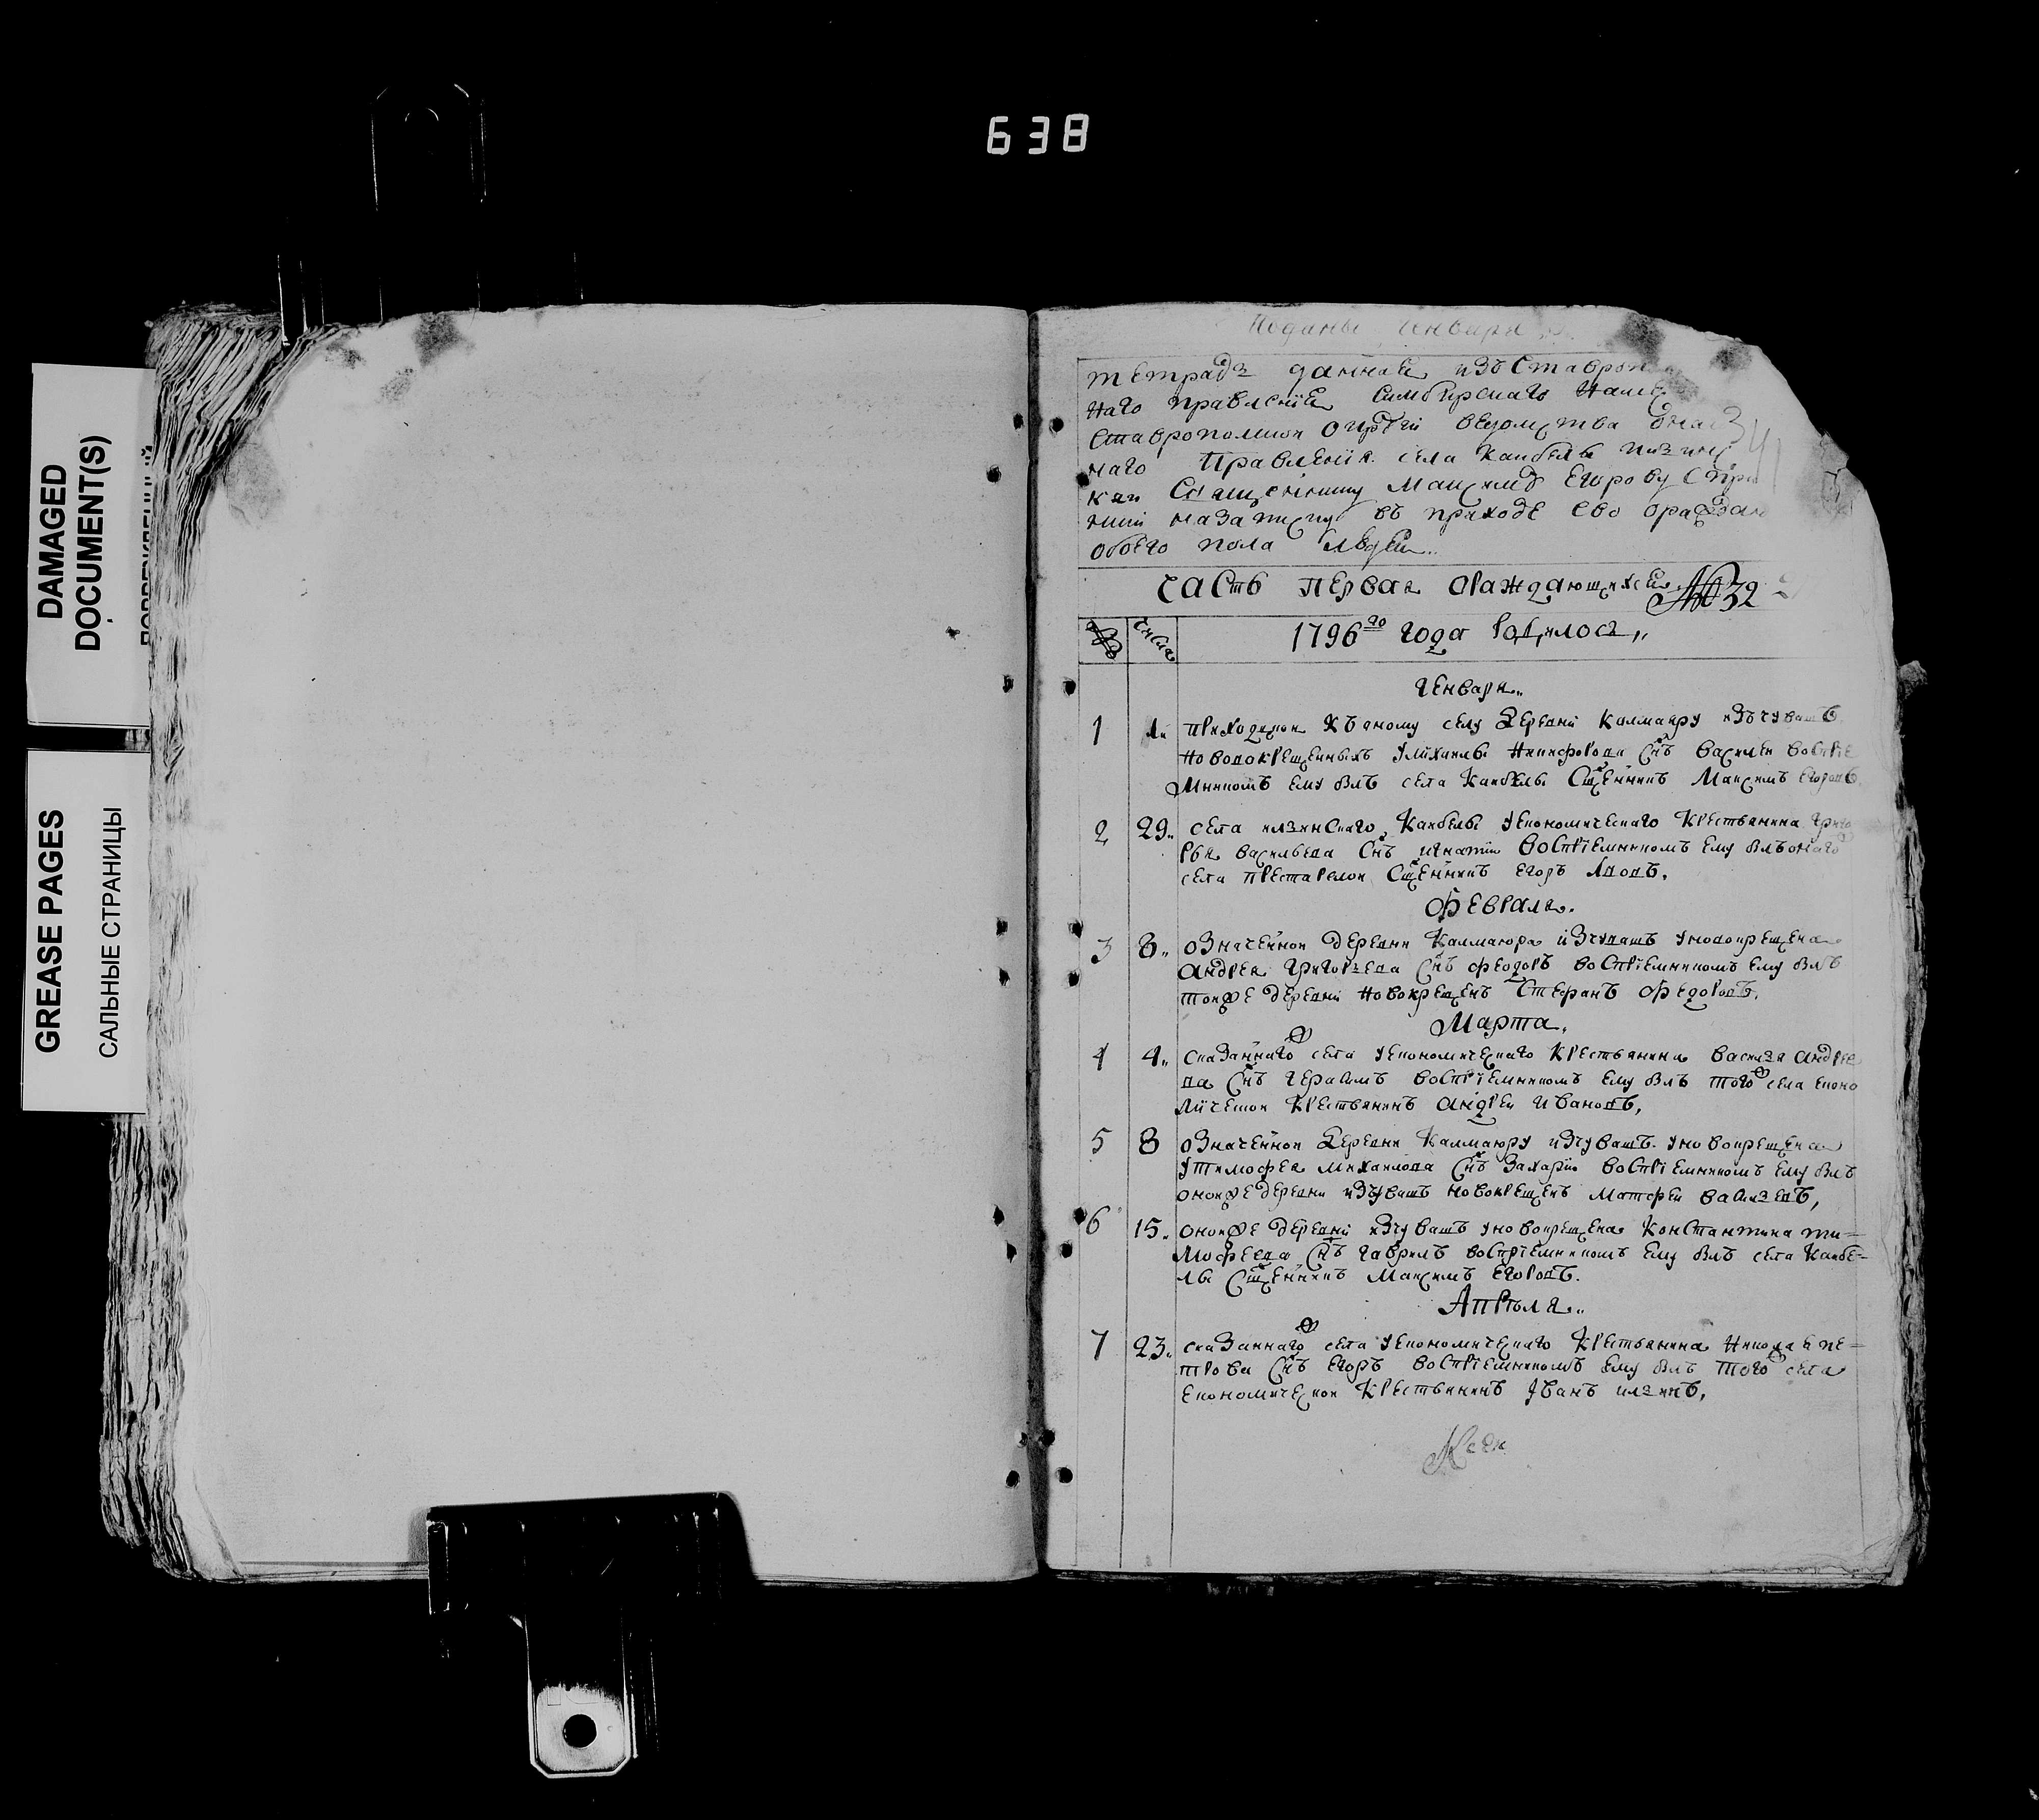 638
DAMAGED
DOCUMENT(S)
GREASE PAGES
САЛЬНЫЕ СТРАНИЦЫ
Поданы Генваря
тетрадь данная изъ Ставропо
наго правления Симбирскаго Наме
Ставрополской округи ведомства
наго Правления села Каибелы
Священнику Максиму Егорову
в приходе ево
обоего пола людей..
часть первая ораждающихся №32
№ числа 1796го года родилося,,
Генваря..
1 1. приходской къ оному селу деревни Калмаюру изъчувашъ
новокрещенныхъ умихаилы Никифорова снъ василей воспрïе
мникомъ ему былъ села Каибелы Сщенникъ Максимъ Егоровъ
2 29.. села Каибелы уекономическаго крестьянина григо
рья васильева снъ игнатiй воспрïемникомъ ему былъонаго
села престарелой Сщенникъ Егоръ
Февраля.
3 8.. означенной деревни Калмаюра изчувашъ уновокрещена
андрея григорьева снъ феодоръ воспрïемникомъ ему былъ
тоиже деревни новокрещенъ Стефанъ Федоровъ.
Марта.
4 4.. сказаннаго села уекономическаго крестьянина василья андрее
ва снъ герасимъ воспрïемникомъ ему былъ того села еконо
мической крестьянинъ андрей ивановъ,
5 8 означенной деревни Калмаюру изчувашъ уновокрещена
утимофея михаилова снъ захарïй воспрïемникомъ ему былъ
оноиже деревни изчувашъ новокрещенъ матфей васильевъ,
6 15. оноиже деревни изчувашъ уновокрещена константина ти=
мофеева снъ гаврилъ воспрïемникомъ ему былъ села Каибе=
лы Сщенникъ Максимъ Егоровъ.
Апреля..
7 23. сказаннаго села уекономическаго крестьянина николая пе=
трова снъ егоръ воспрïемникомъ ему былъ того села
економической крестьянинъ иванъ ильинъ.